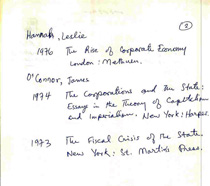 3
Hannah, Leslie
1976 The Rise of Corporate Economy
London : Methuen.
O'Connor, James
1974 The Corporations and the State:
Essays in the Theory of Capitalism
and Imperialism. New York: Harper
1973 The Fiscal Crisis of the State.
New York: St. Martin's Press.